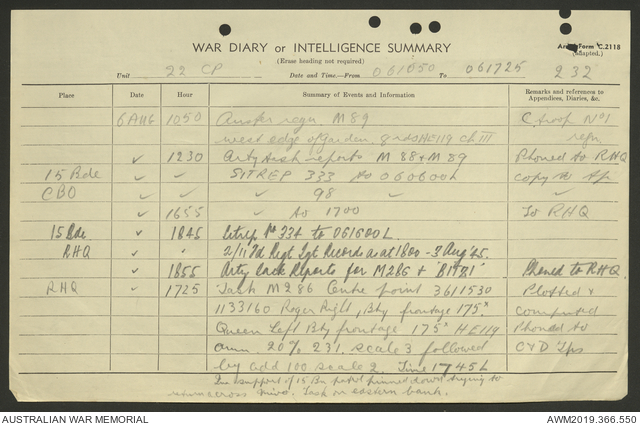 Army Form C.2118
(adapted.)
WAR DIARY or INTELLIGENCE SUMMARY
(Erase heading not required)
Unit 22 CP Date and Time:—From 061050 To 061725 232
Place Date Hour Summary of Events and Information Remarks and references to Appendices, Diaries, &c.
6 AUG 1050 M 89 C troop No1
west edge of garden. 8 rds HE119 ch III
1230 Arty task reports M 88 + M 89 Phoned to RHQ
15 Bde ✓ SITREP 333 to 060600L copy to
CBO ✓ ✓ ✓ 98 ✓ ✓
✓ 1655 ✓ to 1700 To RHQ
15 Bde ✓ 1845 Sitrep No 334 to 061600L.
RHQ ✓ " 2/11 Fd Regt Tgt Records as at 1800 - 3 Aug 45.
✓ 1855 Arty task Reports for M286 + 'B1TB1' Phoned to RHQ.
RHQ ✓ 1725 Task M286 Centre point 3611530 Plotted +
1133160 Roger Right, Bty frontage 175x computed
Queen Left Bty frontage 175x HE119 Phoned to
amm 20% 231. scale 3 followed C & D Tps
by add 100 scale 2. Time 1745L
In support of 15 Bn patrol pinned down trying to
return across Task on eastern bank.
AUSTRALIAN WAR MEMORIAL
AWM2019.366.550